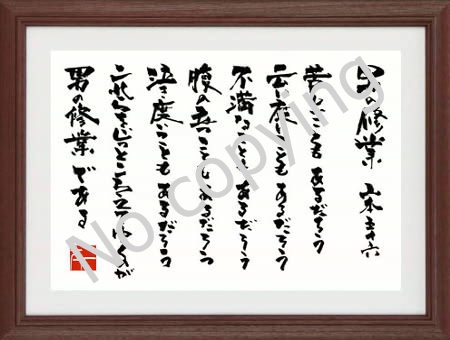 男の修業 山本五十六
苦しいこともあるだろう
云い度いこともあるだろう
不満なこともあるだろう
腹の立つこともあるだろう
泣き度いこともあるだろう
これらをじっとこらえてゆくのが
男の修業である
No copying